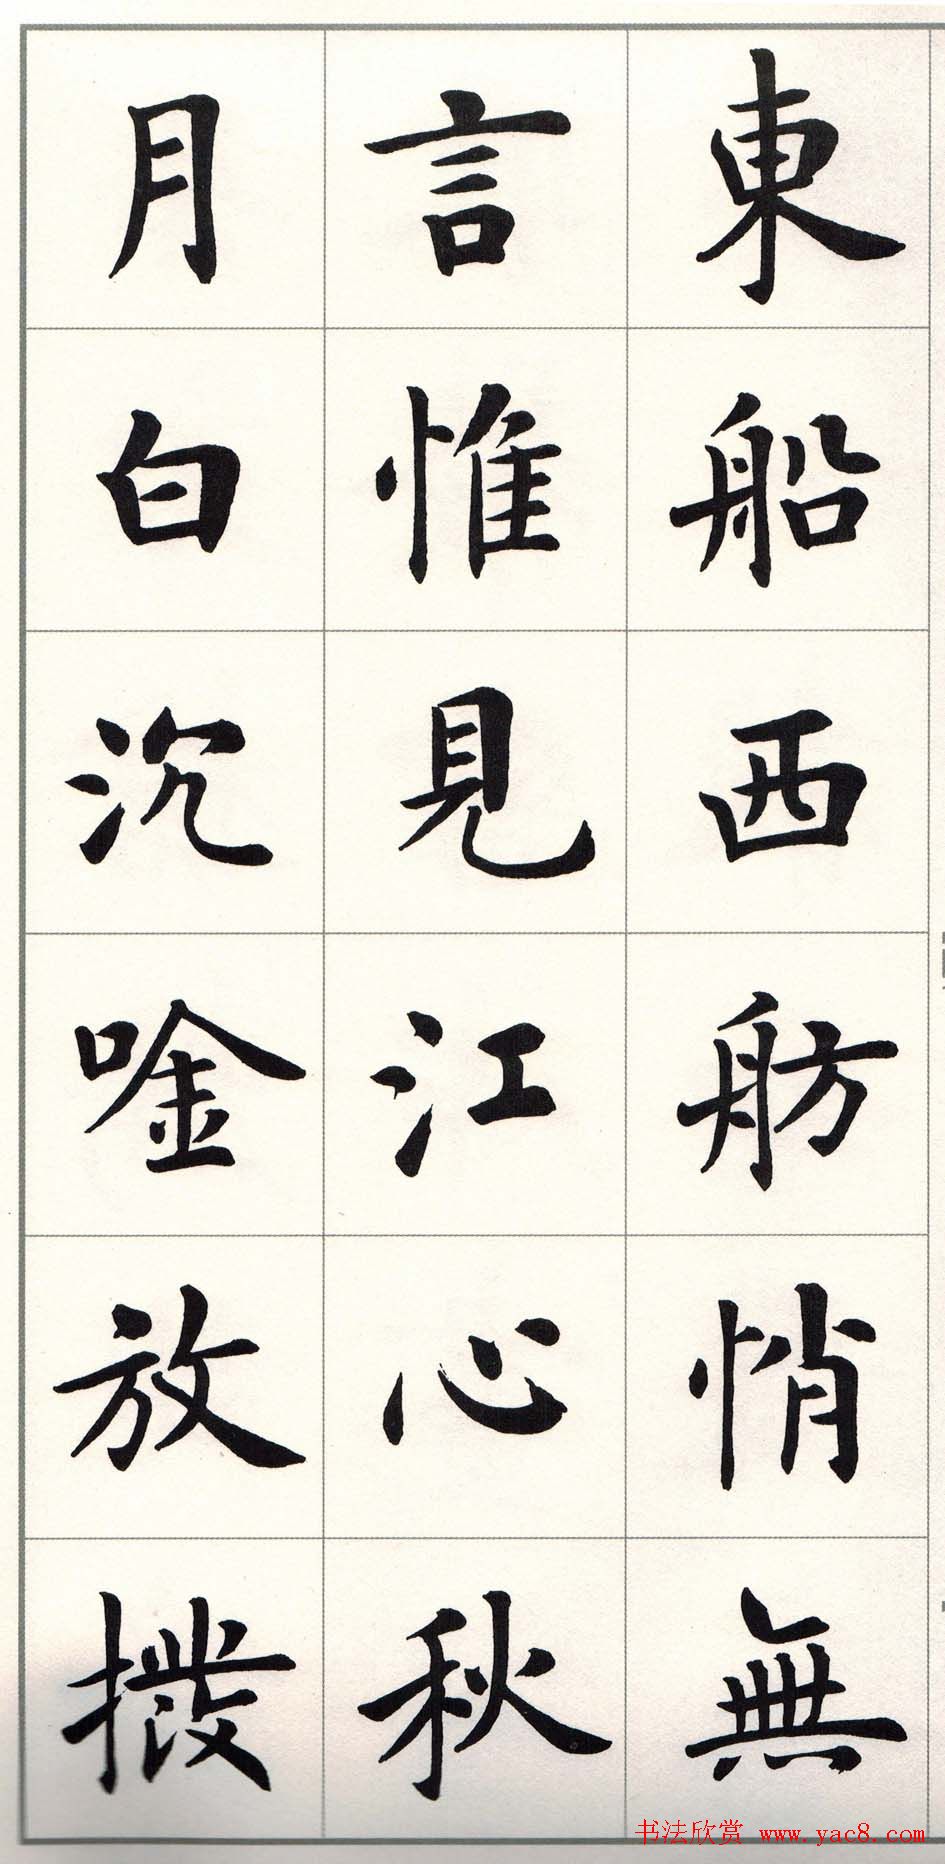 東船西舫悄無
言惟見江心秋
月白沉唫放撥
书法欣赏 www.yac8.com